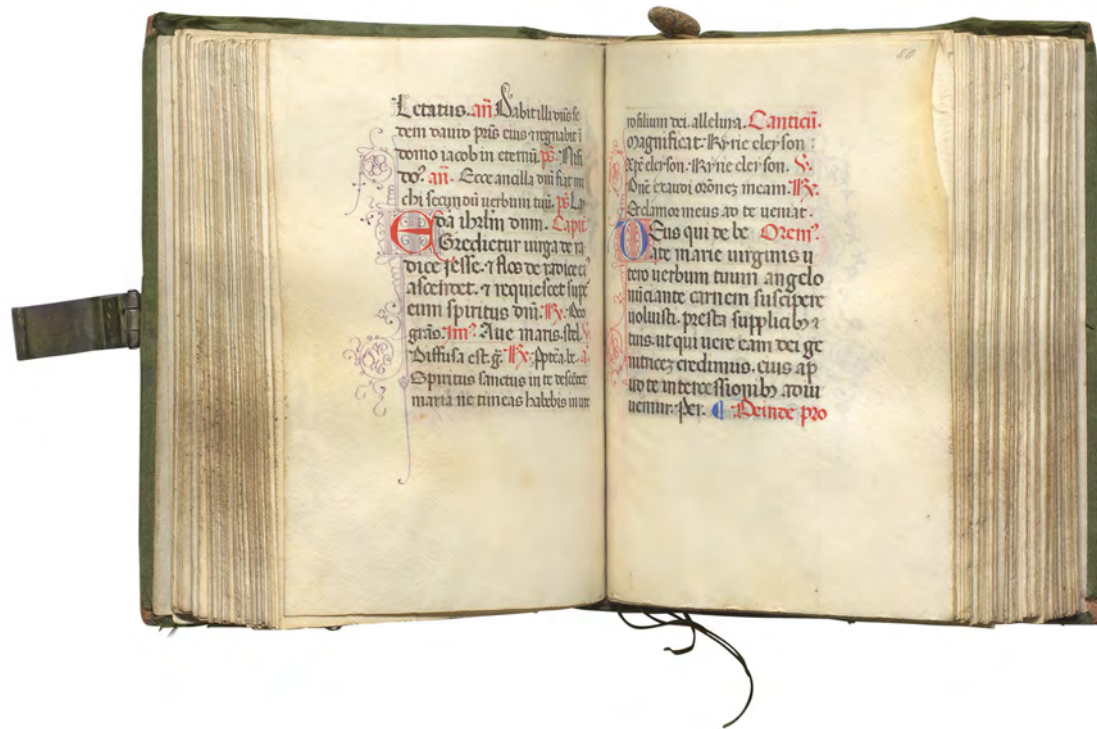 Letatus. an̄ Dabit illi dn̄s se
dem dauid pr̄is eius ⁊ regnabit ī
domo iacob in eternū. ps̄. Nisi
do᷒. an̄. Ecce ancilla dn̄i fiat mi
chi secundū uerbum tuū. ps̄ La
uda ihrl̄m dnm̄. Capit̄
Egredietur uirga de ra
dice jesse. ⁊ flos de radice ei᷒
ascendet. ⁊ requiescet sup̄
eum spiritus dn̄i. ℟. Deo
grās. Im̄᷒. Aue maris. stel. ℣
Diffusa est. ḡ. ℟. ꝓptea. be. a.
Spiritus sanctus in te descēdet
maria ne timeas habebis in ute
80
ro filium dei. alleluia. Canticū.
Magnificat. Kyrie eleyson
xp̄e eleyson. Kyrie eleyson. ℣.
Dn̄e exaudi orōnez meam. ℟.
Et clamor meus ad te ueniat.
Deus qui de be Orem᷒.
ate marie uirginis u
tero uerbum tuum angelo
nūciante carnem suscipere
uoluisti. presta supplicibꝫ ⁊
tuis. ut qui uere eam dei ge
nitricez credimus. eius ap
ud te intercessionibꝫ adiu
uemur. Per. ¶ Deinde pro